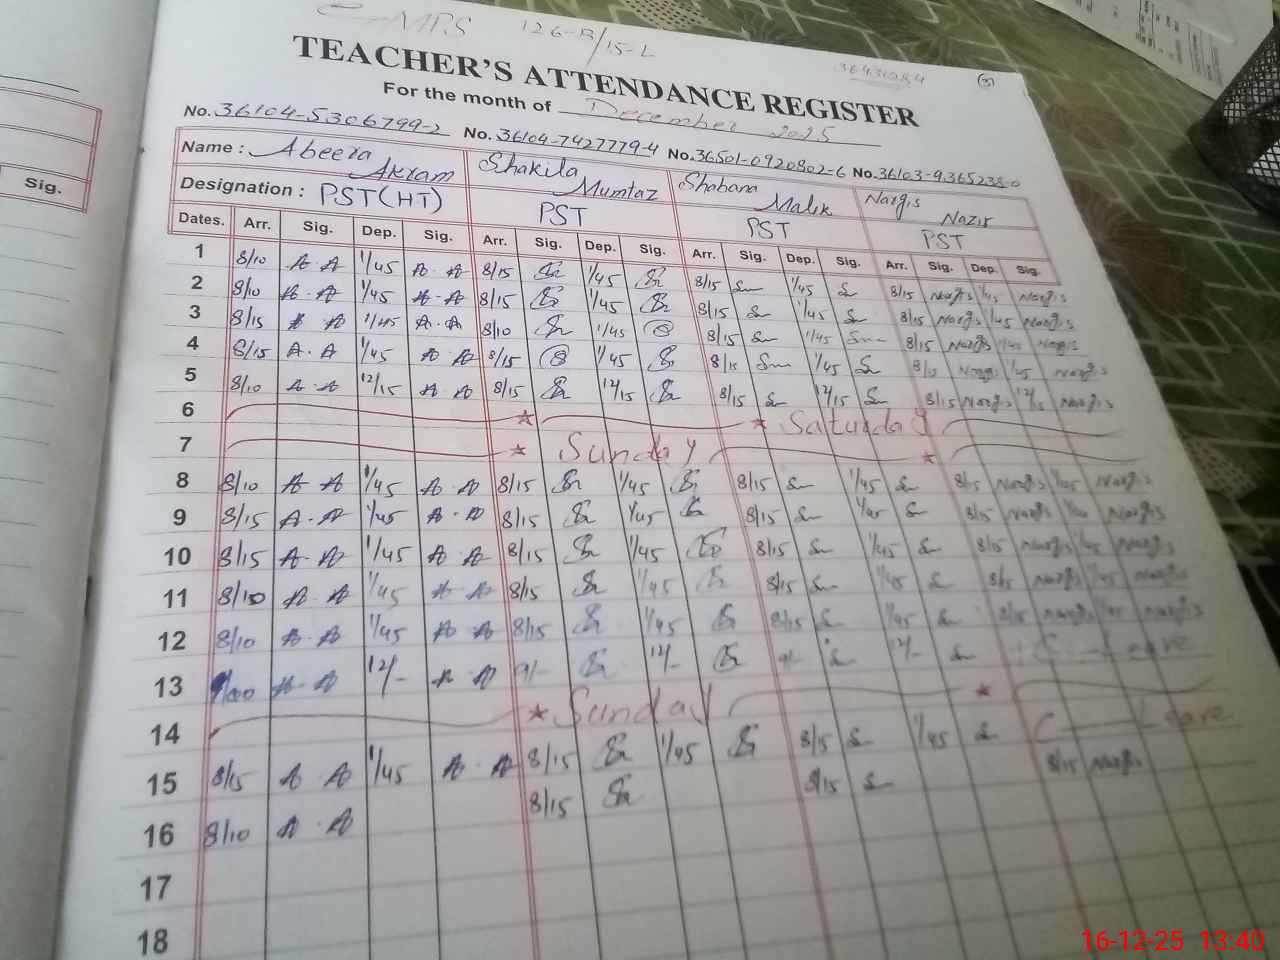 MPS 126-B/15-L
36431084
TEACHER'S ATTENDANCE REGISTER
For the month of December 2025
No. 36104-5306799-2 No. 36104-7427779-4 No. 36501-0920802-6 No. 36103-9365238-0
Name : Abeera Akram Shakila Mumtaz Shabana Malik Nargis Nazir
Designation : PST(HT) PST PST PST
Dates. Arr. Sig. Dep. Sig. Arr. Sig. Dep. Sig. Arr. Sig. Dep. Sig. Arr. Sig. Dep. Sig.
Sig.
1 8/10 A.A 1/45 A.A 8/15 1/45 8/15 1/45 8/15 Nargis 1/45 Nargis
2 8/10 A.A 1/45 A.A 8/15 1/45 8/15 1/45 8/15 Nargis 1/45 Nargis
3 8/15 A 1/45 A.A 8/10 1/45 8/15 1/45 8/15 Nargis 1/45 Nargis
4 8/15 A.A 1/45 A A 8/15 1/45 8/15 1/45 Nargis 1/45 Nargis
5 8/10 A.A 12/15 A A 8/15 12/15 8/15 12/15 8/15 Nargis 12/15 Nargis
6 Saturday
7 Sunday
8 8/10 A A 1/45 A.A 8/15 1/45 8/15 1/45 8/15 Nargis 1/45 Nargis
9 8/15 A.A 1/45 A.A 8/15 1/45 8/15 1/45 8/15 Nargis Nargis
10 8/15 A.A 1/45 A A 8/15 1/45 8/15 1/45 8/15 Nargis 1/45 Nargis
11 8/10 A A 1/45 A A 8/15 1/45 8/15 1/45 8/15 Nargis 1/45 Nargis
12 8/10 A A 1/45 A A 8/15 1/45 8/15 1/45 8/15 Nargis 1/45 Nargis
13 A A 12/- A A 9/- 12/- 9/- 12/- C Leave
14 Sunday
15 8/15 A A 1/45 A A 8/15 1/45 8/15 1/45 C Leave
16 8/10 A.A 8/15 8/15 8/15 Nargis
17
18
16-12-25 13:40